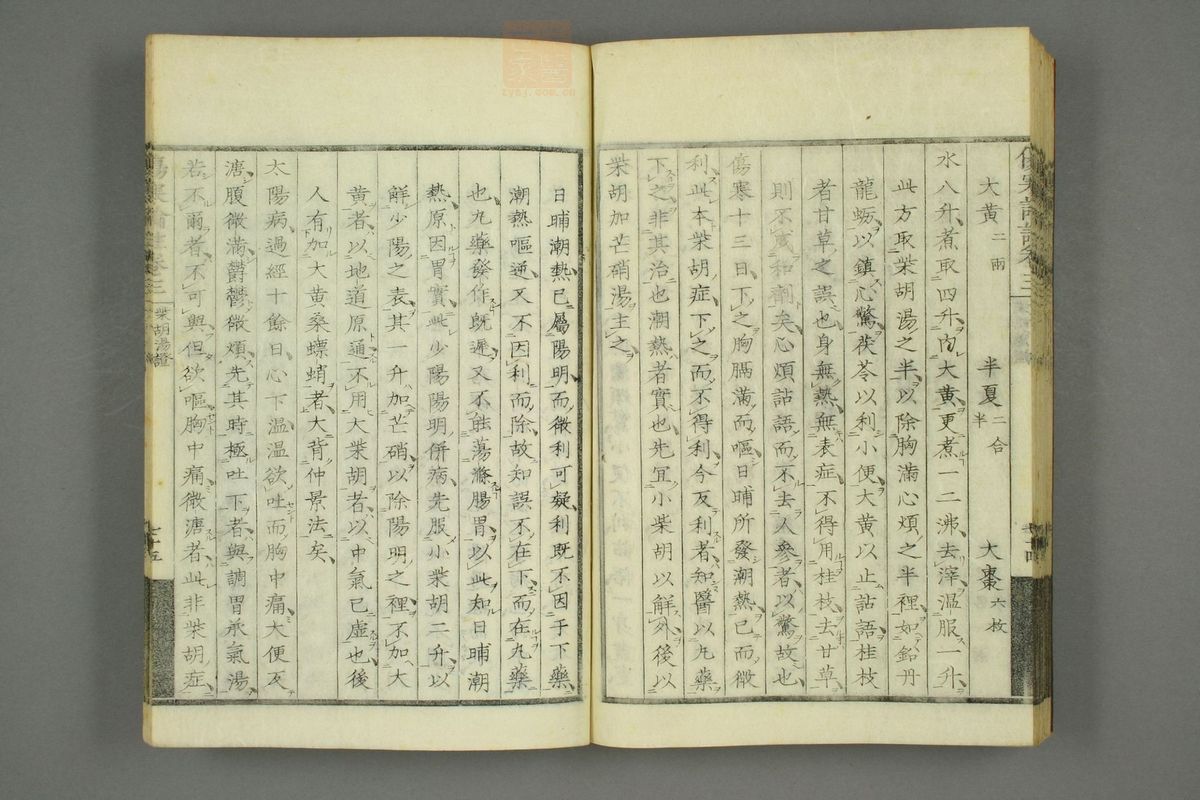 大黃二兩　半夏二合半　大棗六枚
水八升煮取四升內大黃更煮一二沸去滓溫服一升
此方取柴胡湯之半以除胸滿心煩之半裡如鉛丹
龍蠣以鎮心驚茯苓以利小便大黃以止詀語桂枝
者甘草之誤也身無熱無表症不得用桂枝去甘草
則不成和劑矣心煩詀語而不去人參者以驚故也
傷寒十三日下之胸膈滿而嘔日晡所發潮熱已而微
利此本柴胡症下之而不得利今反利者知醫以九藥
下之非其治也潮熱者實也先宜小柴胡以解外後以
柴胡加芒硝湯主之
日晡潮熱已屬陽明而微利可疑利既不因于下藥
潮熱嘔逆又不因利而除故知誤不在下而在九藥
也九藥發作既遲又不能蕩滌腸胃以此知日晡潮
熱原因胃實此少陽陽明併病先服小柴胡二升以
解少陽之表其一升加芒硝以除陽明之裡不加大
黃者以地道原通不用大柴胡者以中氣已虛也後
人有加大黃桑螵蛸者大背仲景法矣
太陽病過經十餘日心下溫溫欲吐而胸中痛大便反
溏腹微滿鬱鬱微煩先其時極吐下者與調胃承氣湯
若不爾者不可與但欲嘔胸中痛微溏者此非柴胡症
柴胡湯證